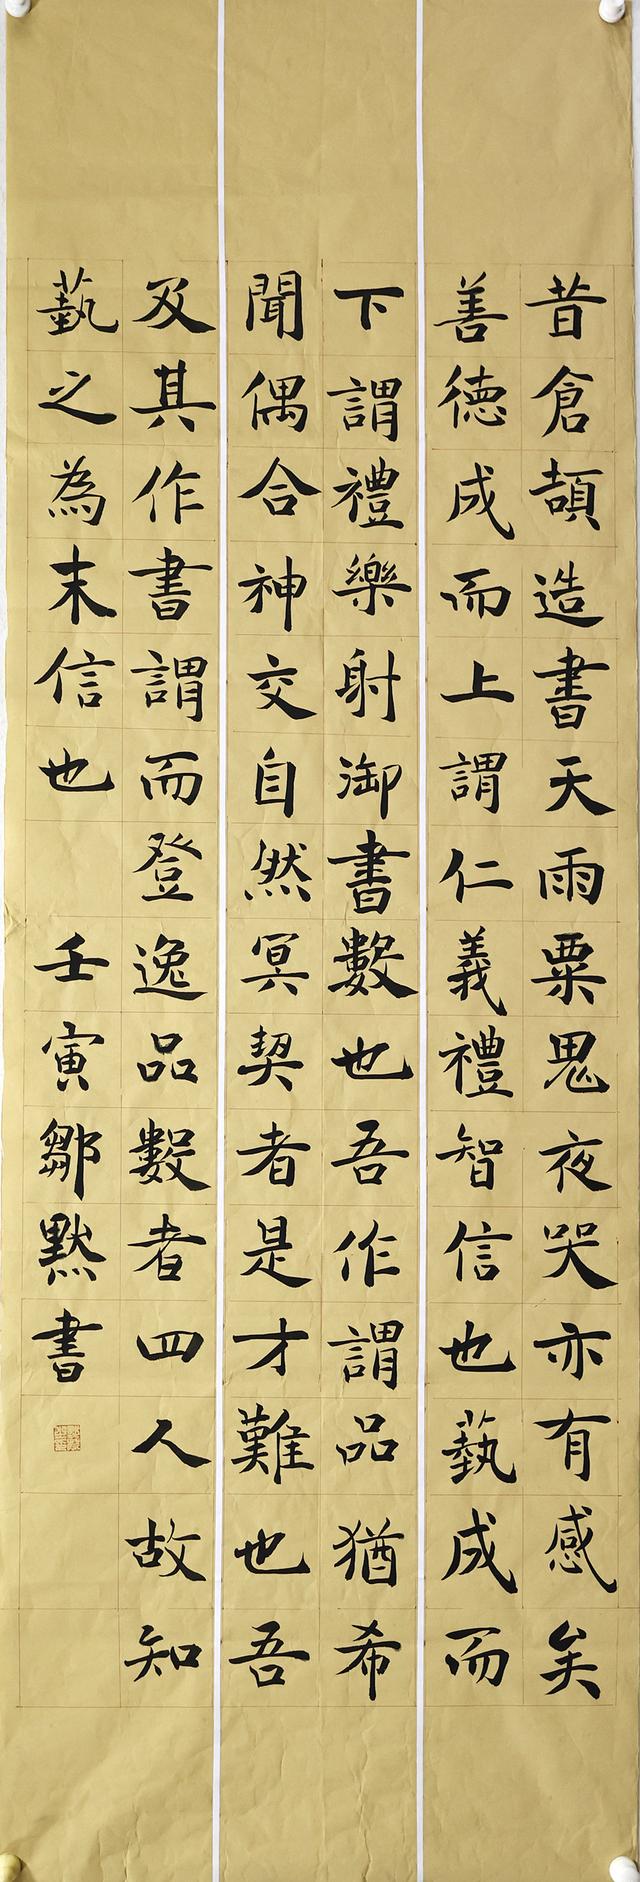 昔倉頡造書天雨粟鬼夜哭亦有感矣
善德成而上謂仁義禮智信也藝成而
下謂禮樂射御書數也吾作謂品猶希
聞偶合神交自然冥契者是才難也吾
及其作書謂而登逸品數者四人故知
藝之為末信也 壬寅鄒黙書